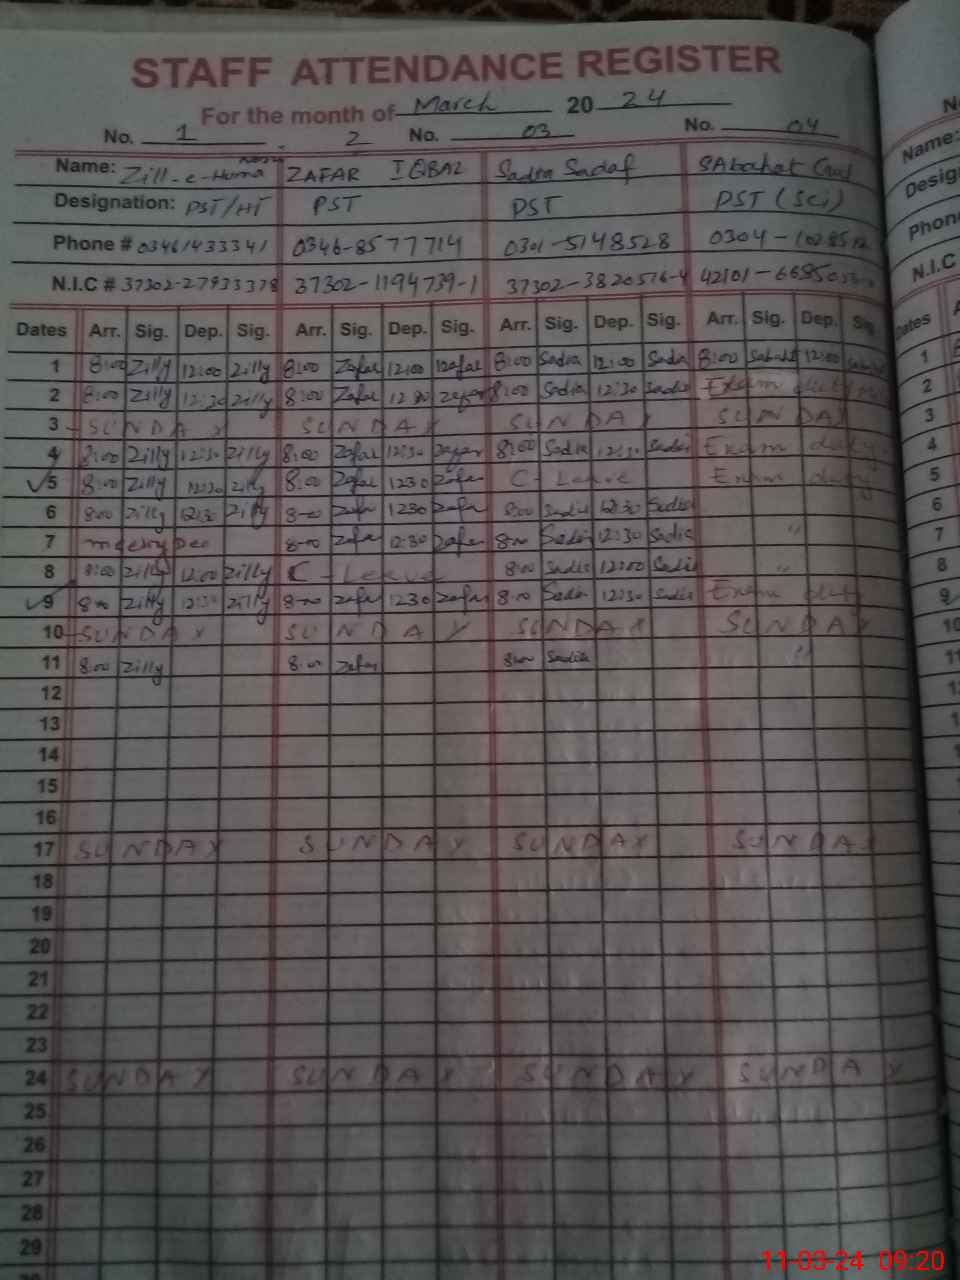 STAFF ATTENDANCE REGISTER
For the month of March 20 24
No. 1 2 No. 03 No. 04
Name: Zill-e-Huma ZAFAR IQBAL Sadia Sadaf SAbachat
Designation: PST/HT PST PST PST (Sci)
Phone # 03461433341 0346-8577714 0301-5148528 0304-
N.I.C # 37302-27933378 37302-1194739-1 37302-3820516-4 42101-
Dates Arr. Sig. Dep. Sig. Arr. Sig. Dep. Sig. Arr. Sig. Dep. Sig. Arr. Sig. Dep. Sig.
1 8:00 Zilly 12:00 Zilly 8:00 Zafar 12:00 Zafar 8:00 Sadia 12:00 Sadia 8:00 12:00
2 8:00 Zilly 12:30 Zilly 8:00 Zafar 12 30 Zafar 8:00 Sadia 12:30 Sadia Exam duty
3 SUNDAY SUNDAY SUNDAY SUNDAY
4 8:00 Zilly 12:30 Zilly 8:00 Zafar 12:30 Zafar 8:00 Sadia 12:30 Sadia Exam duty
5 8:00 Zilly 12:30 Zilly 8:00 Zafar 1230 Zafar C-Leave Exam duty
6 8:00 Zilly 12:30 Zilly 8-00 Zafar 1230 Zafar 8:00 Sadia 12:30 Sadia
7 8-00 Zafar 12:30 Zafar 8:00 Sadia 12:30 Sadia "
8 8:00 Zilly 12:00 Zilly C-Leave 8:00 Sadia 12:00 Sadia "
9 8:00 Zilly 12:30 Zilly 8-00 Zafar 1230 Zafar 8:00 Sadia 12:30 Sadia Exam duty
10 SUNDAY SUNDAY SUNDAY SUNDAY
11 8:00 Zilly 8:00 Zafar 8:00 Sadia "
12
13
14
15
16
17 SUNDAY SUNDAY SUNDAY SUNDAY
18
19
20
21
22
23
24 SUNDAY SUNDAY SUNDAY SUNDAY
25
26
27
28
29
Name:
Phone
N.I.C
1
2
3
4
5
6
7
8
9
10
11
11-03-24 09:20